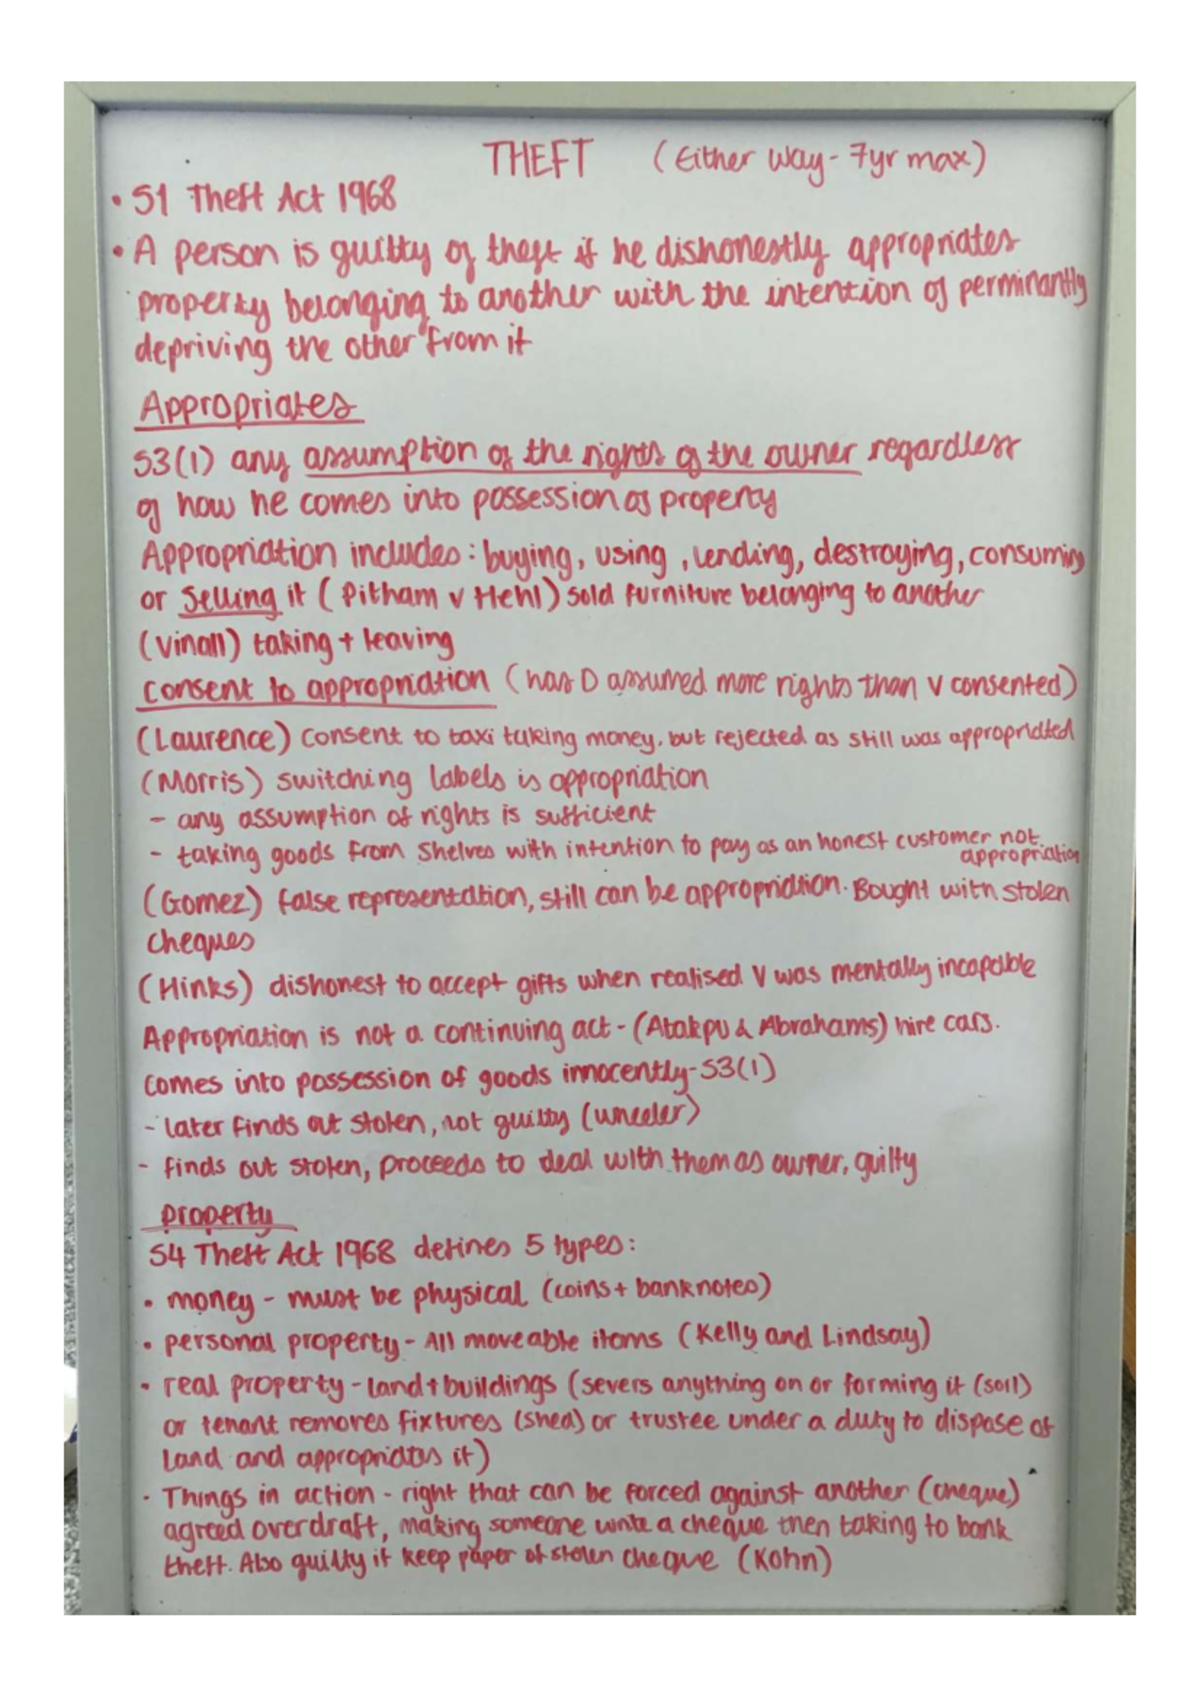 THEFT (Either way - 7yr max)
• S1 Theft Act 1968
• A person is guilty of theft if he dishonestly appropriates
property belonging to another with the intention of perminantly
depriving the other from it
Appropriates
S3(1) any assumption of the rights of the owner regardless
of how he comes into possession of property
Appropriation includes: buying, using, lending, destroying, consuming
or selling it (Pitham v Hehl) sold furniture belonging to another
(Vinall) taking + leaving
consent to appropriation (has D assumed more rights than V consented)
(Laurence) consent to taxi taking money, but rejected as still was appropriated
(Morris) switching labels is appropriation
- any assumption of rights is sufficient
- taking goods from shelves with intention to pay as an honest customer not appropriation
(Gomez) false representation, still can be appropriation. Bought with stolen
cheques
(Hinks) dishonest to accept gifts when realised V was mentally incapable
Appropriation is not a continuing act - (Atakpu & Abrahams) hire cars.
comes into possession of goods innocently - S3(1)
- later finds out stolen, not guilty (wheeler)
- finds out stolen, proceeds to deal with them as owner, guilty
property
S4 Theft Act 1968 defines 5 types:
• money - must be physical (coins + banknotes)
• personal property - All moveable items (Kelly and Lindsay)
• real property - land + buildings (severs anything on or forming it (soil)
or tenant removes fixtures (shed) or trustee under a duty to dispose of
land and appropriates it)
• Things in action - right that can be forced against another (cheque)
agreed overdraft, making someone write a cheque then taking to bank
theft. Also guilty if keep paper of stolen cheque (Kohn)